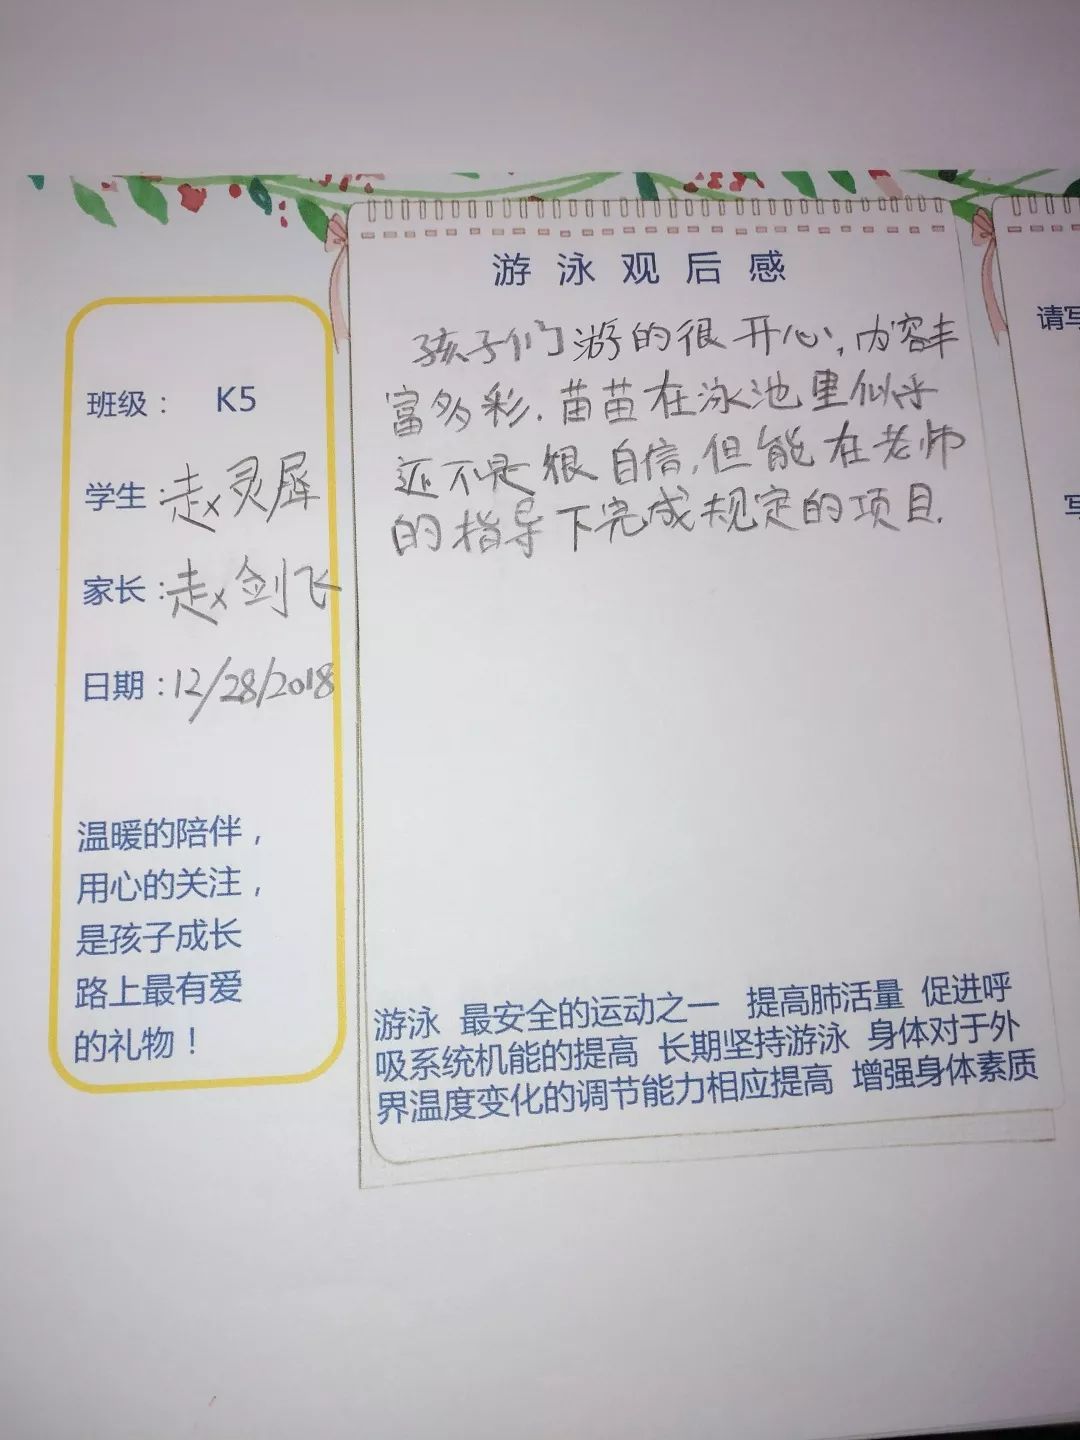 班级： K5
学生：赵灵犀
家长：赵剑飞
日期：12/28/2018
温暖的陪伴，
用心的关注，
是孩子成长
路上最有爱
的礼物！
游泳观后感
孩子们游的很开心,内容丰
富多彩.苗苗在泳池里似乎
还不是很自信,但能在老师
的指导下完成规定的项目.
游泳 最安全的运动之一 提高肺活量 促进呼
吸系统机能的提高 长期坚持游泳 身体对于外
界温度变化的调节能力相应提高 增强身体素质
请写
写